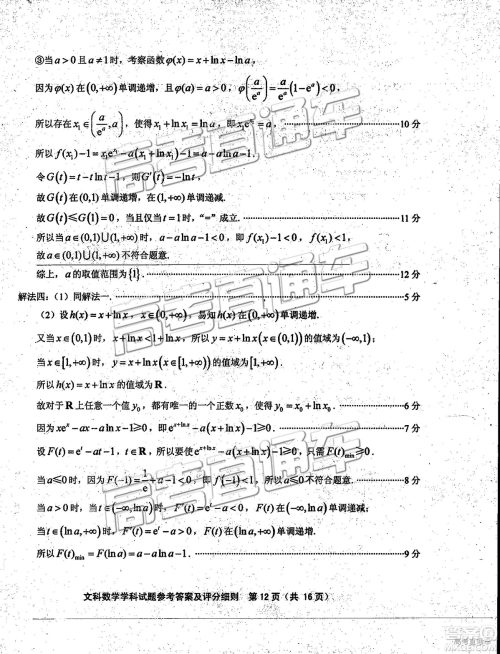 ③当 a>0 且 a≠1 时，考察函数 φ(x)=x+lnx-lna，
因为 φ(x) 在 (0,+∞) 单调递增，且 φ(a)=a>0，φ(a/e^a)=a/e^a(1-e^a)<0，
所以存在 x₁∈(a/e^a,a)，使得 x₁+lnx₁=lna，即 x₁e^x₁=a，……10 分
所以 f(x₁)-1=x₁e^x₁-a(x₁+lnx₁)-1=a-alna-1，
令 G(t)=t-tlnt-1，则 G′(t)=-lnt，
故 G(t) 在 (0,1) 单调递增，在 (1,+∞) 单调递减.
故 G(t)≤G(1)=0，当且仅当 t=1 时，“=”成立. ……11 分
所以当 a∈(0,1)∪(1,+∞) 时，a-alna-1<0，即 f(x₁)-1<0，f(x₁)<1，
故 a∈(0,1)∪(1,+∞) 不符合题意.
综上，a 的取值范围为 {1}. ……12 分
解法四：（1）同解法一. ……5 分
（2）设 h(x)=x+lnx，x∈(0,+∞)，易知 h(x) 在 (0,+∞) 单调递增.
又当 x∈(0,1) 时，x+lnx<1+lnx，所以 y=x+lnx(x∈(0,1)) 的值域为 (-∞,1)；
当 x∈[1,+∞) 时，y=x+lnx(x∈[1,+∞)) 的值域为 [1,+∞).
所以 h(x)=x+lnx 的值域为 R.
故对于 R 上任意一个值 y₀，都有唯一的一个正数 x₀，使得 y₀=x₀+lnx₀. ……6 分
因为 xe^x-ax-alnx-1≥0，即 e^(x+lnx)-a(x+lnx)-1≥0. ……7 分
设 F(t)=e^t-at-1，t∈R，所以要使 e^(x+lnx)-a(x+lnx)-1≥0，只需 F(t)min≥0.
当 a≤0 时，因为 F(-1)=1/e+a-1<0，即 f(-1)<1，所以 a≤0 不符合题意. ……8 分
当 a>0 时，当 t∈(-∞,lna) 时，F′(t)=e^t-a<0，F(t) 在 (-∞,lna) 单调递减；
当 t∈(lna,+∞) 时，F′(t)=e^t-a>0，F(t) 在 (lna,+∞) 单调递增.
所以 F(t)min=F(lna)=a-alna-1. ……9 分
文科数学学科试题参考答案及评分细则 第 12 页（共 16 页）
高考直通车
高考直通车
高考直通车